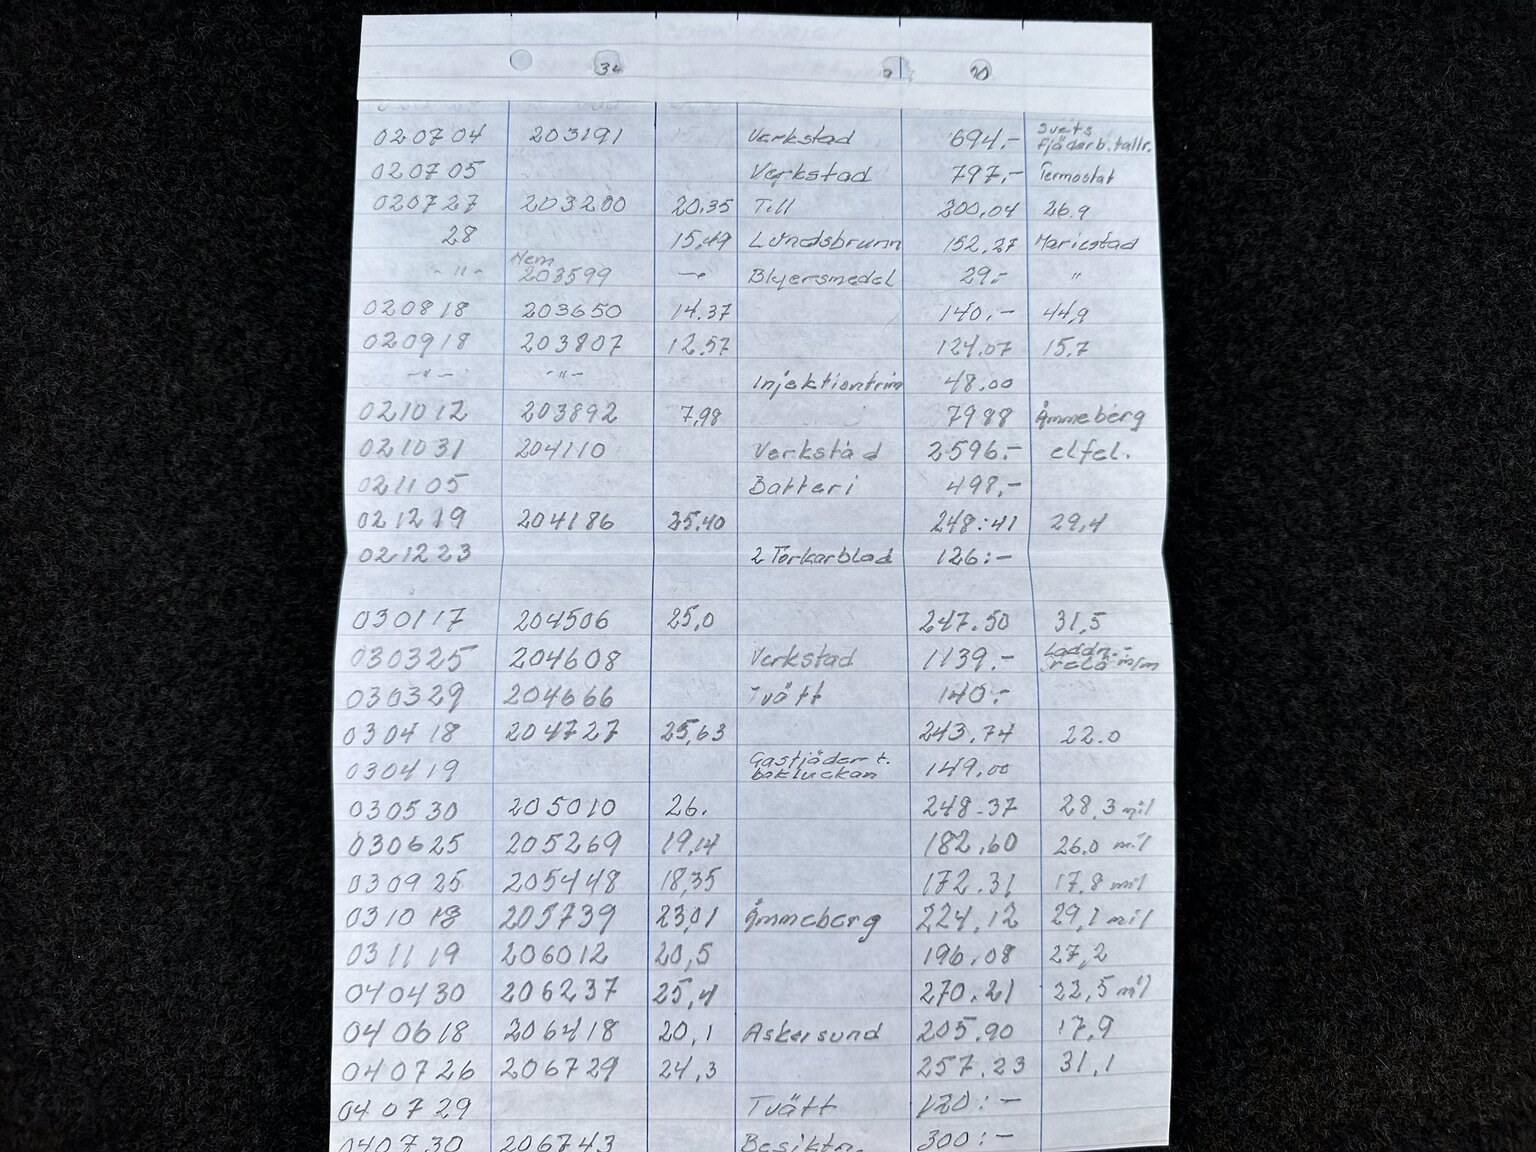 34 20
020704 203191 Verkstad 694.- Svets Fjäderb.tallr.
020705 Verkstad 797,- Termostat
020727 203200 20,35 Till 200,04 26.9
28 15,49 Lundsbrunn 152,27 Mariestad
-"- Hem 203599 - 29:- "
020818 203650 14.37 140.- 44,9
020918 203807 12.57 124.07 15,7
-"- -"- Injektiontrim 48.00
021012 203892 7,98 7988 Åmmeberg
021031 204110 Verkstad 2596.- elfel.
021105 Batteri 498,-
021219 204186 25,40 248:41 29,4
021223 2 Torkarblad 126:-
030117 204506 25,0 247.50 31,5
030325 204608 Verkstad 1139.- Laddn.- relä m/m
030329 204666 Tvätt 140:-
030418 204727 25,63 243.74 22.0
030419 Gasfjäder t. bakluckan 149,00
030530 205010 26. 248.37 28,3 mil
030625 205269 19,14 182,60 26.0 mil
030925 205448 18,35 172.31 17,8 mil
031018 205739 23,01 Åmmeberg 224,12 29,1 mil
031119 206012 20,5 196,08 27,2
040430 206237 25,4 270.21 22,5 mil
040618 206418 20,1 Askersund 205.90 17,9
040726 206729 24,3 257.23 31,1
040729 Tvätt 120:-
040730 206743 Besiktn. 300:-